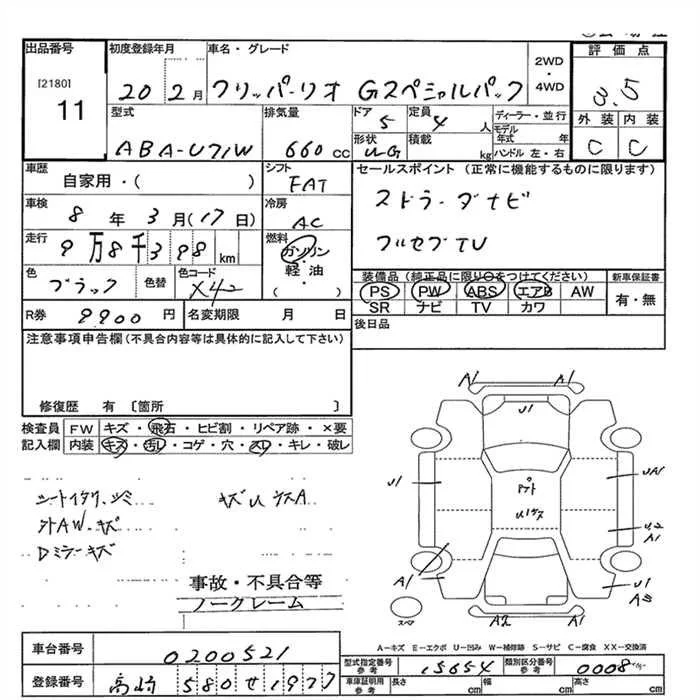 出品番号 初度登録年月 車名・グレード 2WD・4WD 評価点
[2180] 11 20 2月 フリッパーリオ Gスペシャルパック 3.5
型式 排気量 ドア 定員 ディーラー・並行 外装 内装
ABA-U71W 660cc 5 4人 モデル年式 年 C C
形状 積載 kg ハンドル 左・右
車歴 シフト セールスポイント(正常に機能するものに限ります)
自家用・( ) FAT ストラーダナビ
車検 冷房
8年3月(17日) AC フルセグTV
走行 燃料
9万8千398km ガソリン・軽油・( )
色 色替 色コード 装備品(純正品に限り○をつけてください) 新車保証書
ブラック X42 PS PW ABS エアB AW 有・無
SR ナビ TV カワ
R券 9900円 名変期限 月 日 後日品
注意事項申告欄(不具合内容等は具体的に記入して下さい)
修復歴 有 〔箇所 〕
検査員 FW キズ・飛石・ヒビ割・リペア跡・×要
記入欄 内装 キズ・汚レ・コゲ・穴・スレ・キレ・破レ
シートイタク、シミ キズU
外AW、キズ
Dミラーキズ
事故・不具合等
ノークレーム
A1 A1
U1
U1 UA1
U2
A1
A1 U1
A2 A1
スペア
A-キズ E-エクボ U-凹み W-補修跡 S-サビ C-腐食 XX-交換済
車台番号 0200521
型式指定番号 参考 15654 類別区分番号 参考 0008
登録番号 高崎 580せ1977
車庫証明用 参考 長さ cm 幅 cm 高さ cm